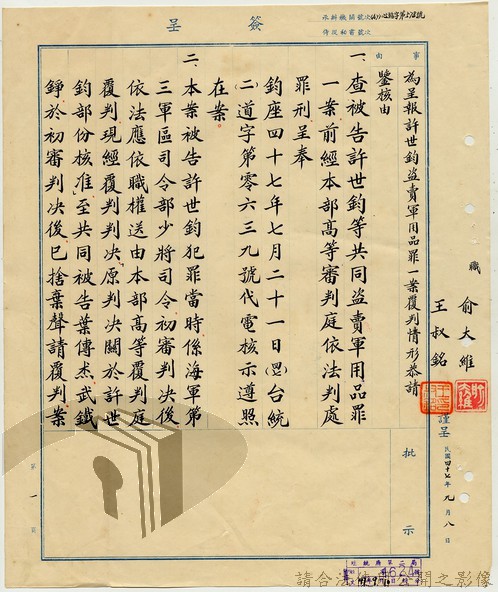 簽呈
事由
為呈報許世鈞盜賣軍用品罪一案覆判情形恭請
鑒核由
職 俞大維
王叔銘
謹呈
民國四十七年九月八日
批示
一、查被告許世鈞等共同盜賣軍用品罪
一案前經本部高等審判庭依法判處
罪刑呈奉
鈞座四十七年七月二十一日(四七)台統
(二)道字第零六三九號代電核示遵照
在案
二、本案被告許世鈞犯罪當時係海軍第
三軍區司令部少將司令初審判決後
依法應依職權送由本部高等覆判庭
覆判現經覆判判決「原判決關於許世
鈞部份核准」至共同被告葉傳杰武鐵
錚於初審判決後已捨棄聲請覆判案
第一頁
請合法使用公開之影像